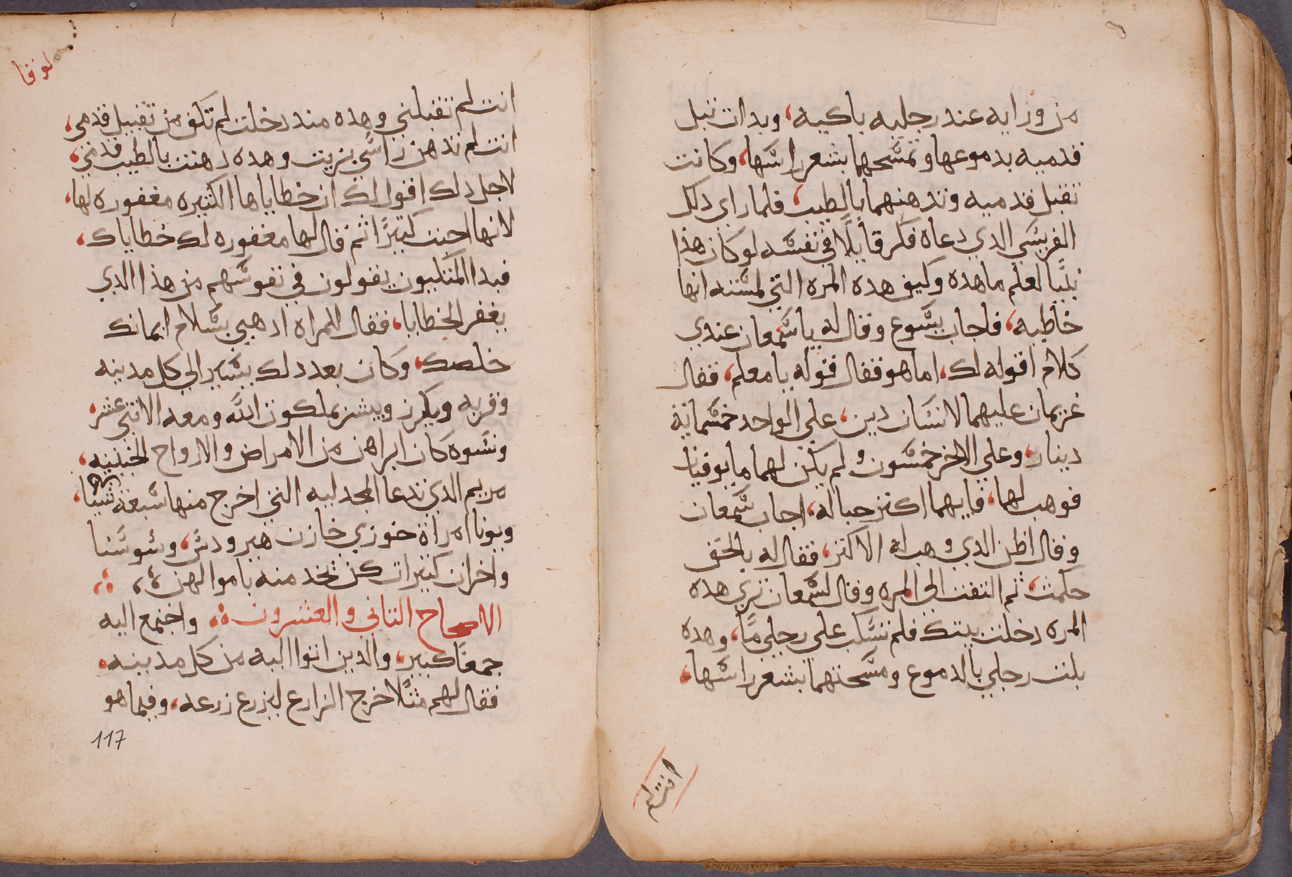 من ورايه عند رجليه باكيه، وبدات تبل
قدميه بدموعها وتمسحهما بشعر راسها، وكانت
تقبل قدميه وتدهنهما بالطيب، فلما راى دلك
الفريسي الدي دعاه فكر قايلا في نفسه لو كان هذا
نبيا لعلم ما هده وكيف هده المره التي لمسته انها
خاطيه، فاجاب يسوع وقال له يا سمعان عندي
كلام اقوله لك، اما هو فقال قوله يا معلم، فقال
غريمان عليهما لانسان دين، على الواحد خمسماية
دينار، وعلى الاخر خمسون ولم يكن لهما ما يوفيان
فوهب لهما، فايهما اكتر حبا له، اجاب سمعان
وقال اظن الدي وهب له الاكتر، فقال له بالحق
حكمت، تم التفت الى المره وقال لسمعان ترى هده
المره دخلت بيتك فلم تسكب على رجلي ما، وهده
بلت رجلي بالدموع ومسحتهما بشعر راسها،
انت لم
لوقا
انت لم تقبلني وهده مند دخلت لم تكف من تقبيل قدمي،
انت لم تدهن راسي بزيت وهده دهنت بالطيب قدمي،
لاجل دلك اقول لك ان خطاياها الكتيره مغفوره لها،
لانها احبت كتيرا تم قال لها مغفوره لك خطاياك،
فبدا المتكيون يقولون في نفوسهم من هذا الدي
يغفر الخطايا، فقال للمراه ادهبي بسلام ايمانك
خلصك، وكان بعد دلك يسير الى كل مدينه
وقريه ويكرز ويبشر بملكوت الله ومعه الاتني عشر،
ونسوه كان ابراهن من الامراض والارواح الخبيته،
مريم الدي تدعا المجدليه التي اخرج منها سبعة
ويونا امراة خوزي خازن هيرودس، وسوسنا
واخرات كتيرات كن يخدمنه باموالهن
الاصحاح التاني والعشرون واجتمع اليه
جمعا كبير، والدين اتوا اليه من كل مدينه،
فقال لهم متلا خرج الزارع ليزرع زرعه، وفيما هو
117